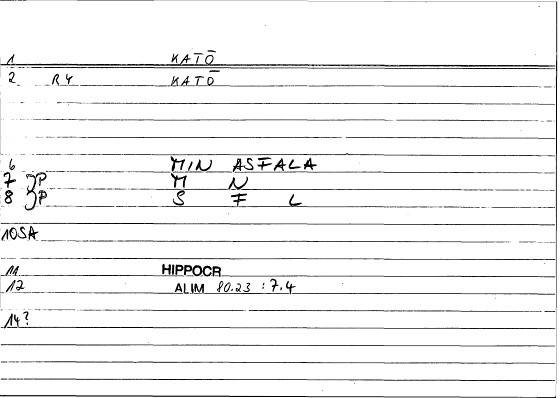 1 KATŌ
2 R4 KATŌ
6 MIN ASFALA
7 JP M N
8 JP S F L
10SA
11 HIPPOCR
12 ALIM 80.23 : 7.4
14?